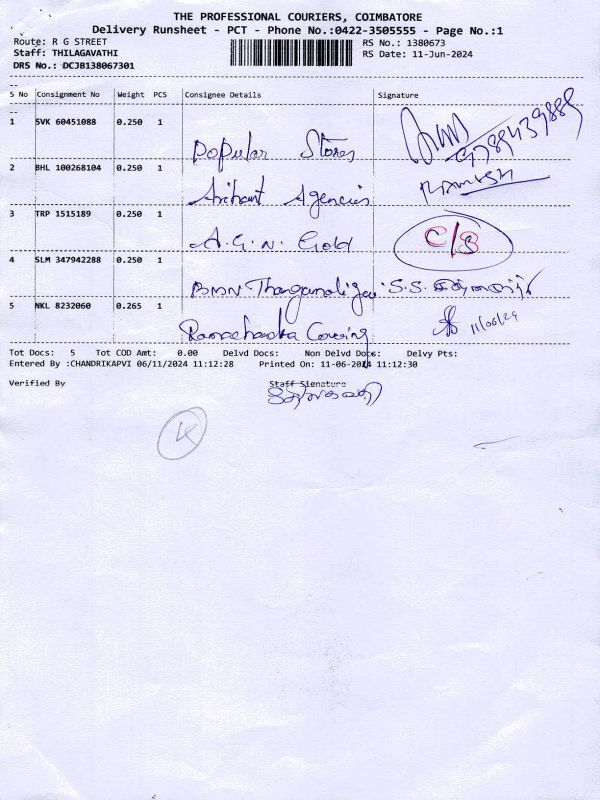 THE PROFESSIONAL COURIERS, COIMBATORE
Delivery Runsheet - PCT - Phone No.:0422-3505555 - Page No.:1
Route: R G STREET RS No.: 1380673
Staff: THILAGAVATHI RS Date: 11-Jun-2024
DRS No.: DCJB138067301
S No Consignment No Weight PCS Consignee Details Signature
1 SVK 60451088 0.250 1
Popular Stores
2 BHL 100268104 0.250 1
Arihant Agencies
3 TRP 1515189 0.250 1
A.G.N. Gold C/B
4 SLM 347942288 0.250 1
BMN Thangamaligai S.S.
5 NKL 8232060 0.265 1
Ramachandra Covering 11/06/24
Tot Docs: 5 Tot COD Amt: 0.00 Delvd Docs: Non Delvd Docs: Delvy Pts:
Entered By :CHANDRIKAPVI 06/11/2024 11:12:28 Printed On: 11-06-2024 11:12:30
Verified By Staff Signature
திலகவதி
4